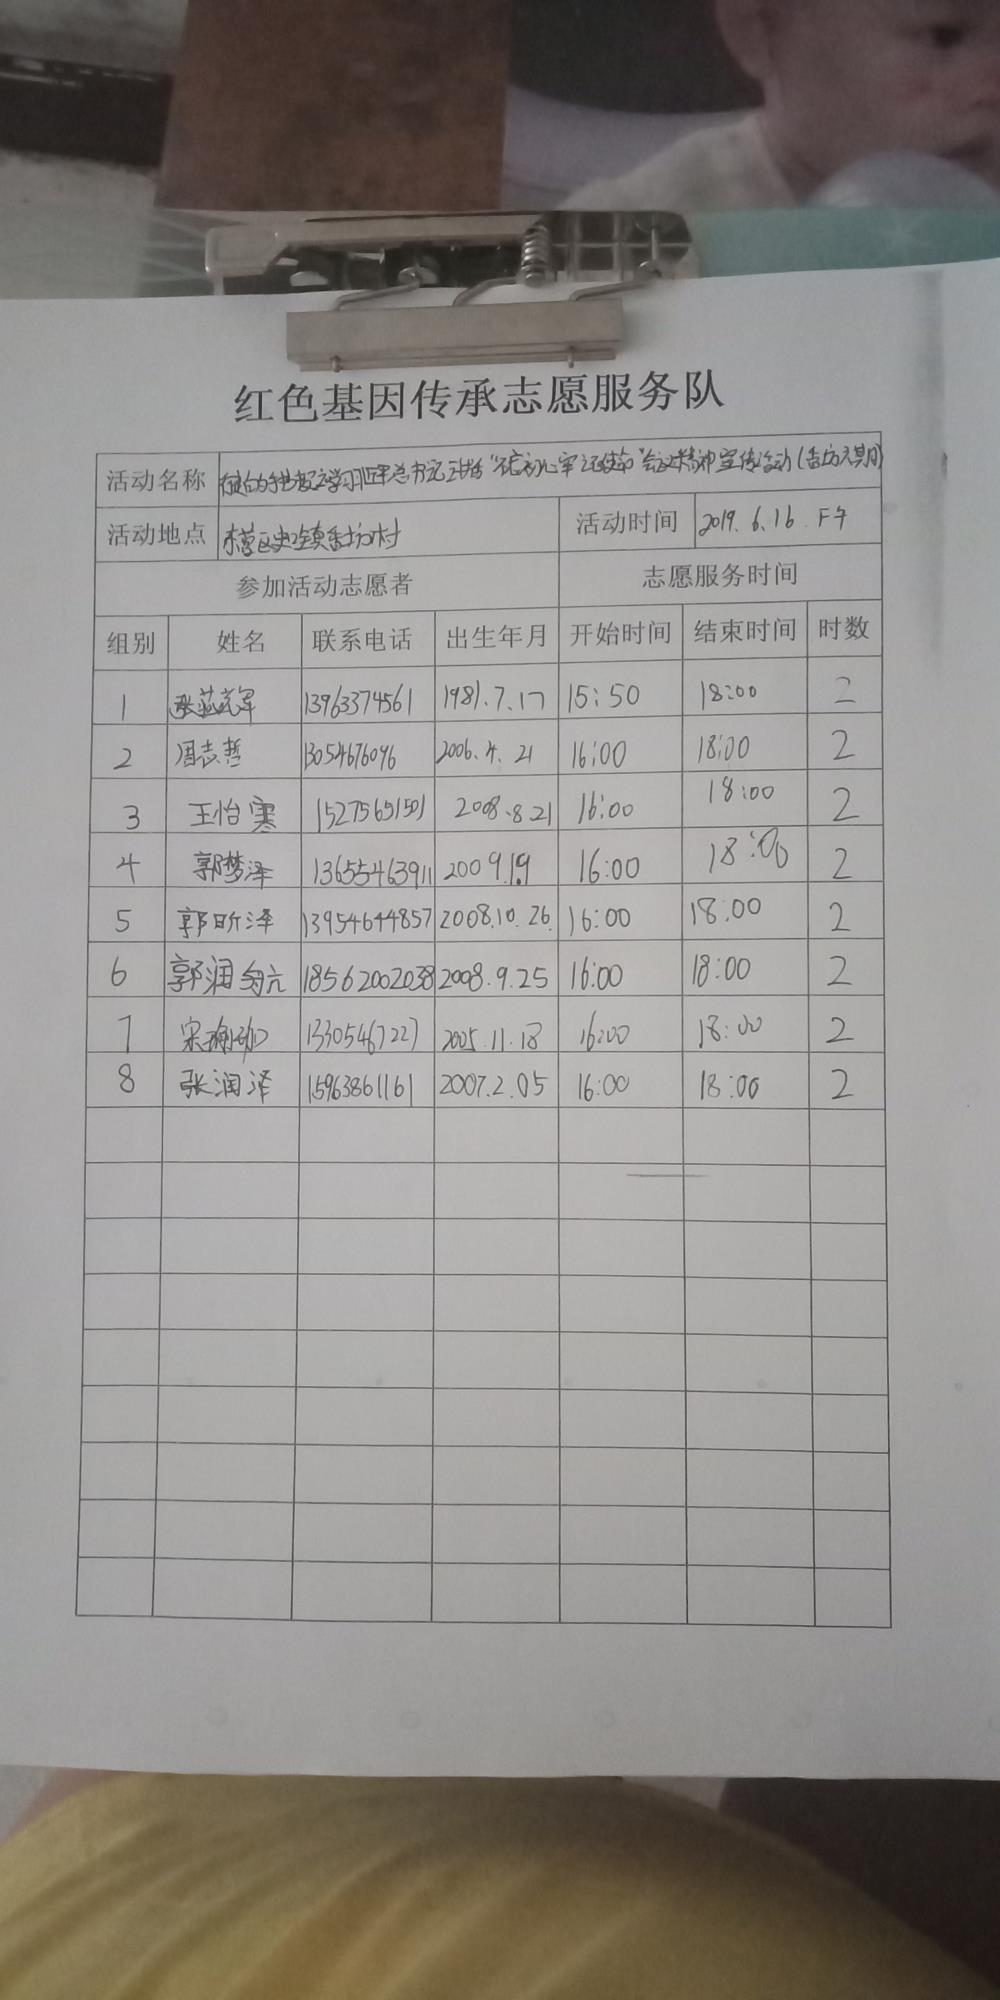 红色基因传承志愿服务队
活动名称 学习 总书记 "不忘初心牢记使命" 精神宣传活动
活动地点 村 活动时间 2019.6.16.下午
参加活动志愿者 志愿服务时间
组别 姓名 联系电话 出生年月 开始时间 结束时间 时数
1 13963374561 1981.7.17 15:50 18:00 2
2 周志哲 13054676096 2006.4.21 16:00 18:00 2
3 王怡寒 15275651501 2008.8.21 16:00 18:00 2
4 郭梦泽 13655463911 2009.1.9 16:00 18:00 2
5 郭昕泽 13954644857 2008.10.26 16:00 18:00 2
6 郭润 18562002038 2008.9.25 16:00 18:00 2
7 宋 13305467227 2005.11.18 16:00 18:00 2
8 张润泽 15963861161 2007.2.05 16:00 18:00 2